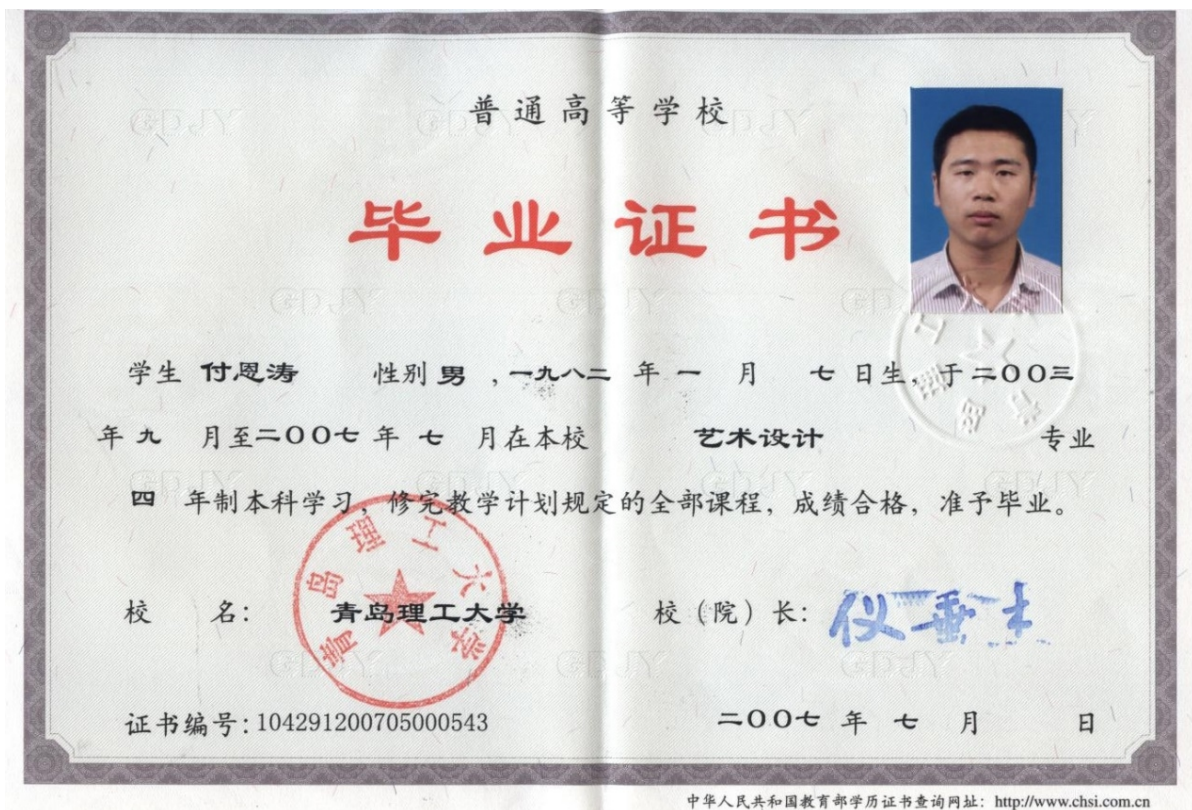 普通高等学校
毕业证书
学生 付恩涛 性别 男 ，一九八二 年 一 月 七 日生，于二〇〇三
年 九 月至二〇〇七 年 七 月在本校 艺术设计 专业
四 年制本科学习，修完教学计划规定的全部课程，成绩合格，准予毕业。
青岛理工大学
校 名： 青岛理工大学 校（院）长： 仪垂杰
证书编号：104291200705000543 二〇〇七 年 七 月 日
中华人民共和国教育部学历证书查询网址：http://www.chsi.com.cn
GDJY
青岛理工